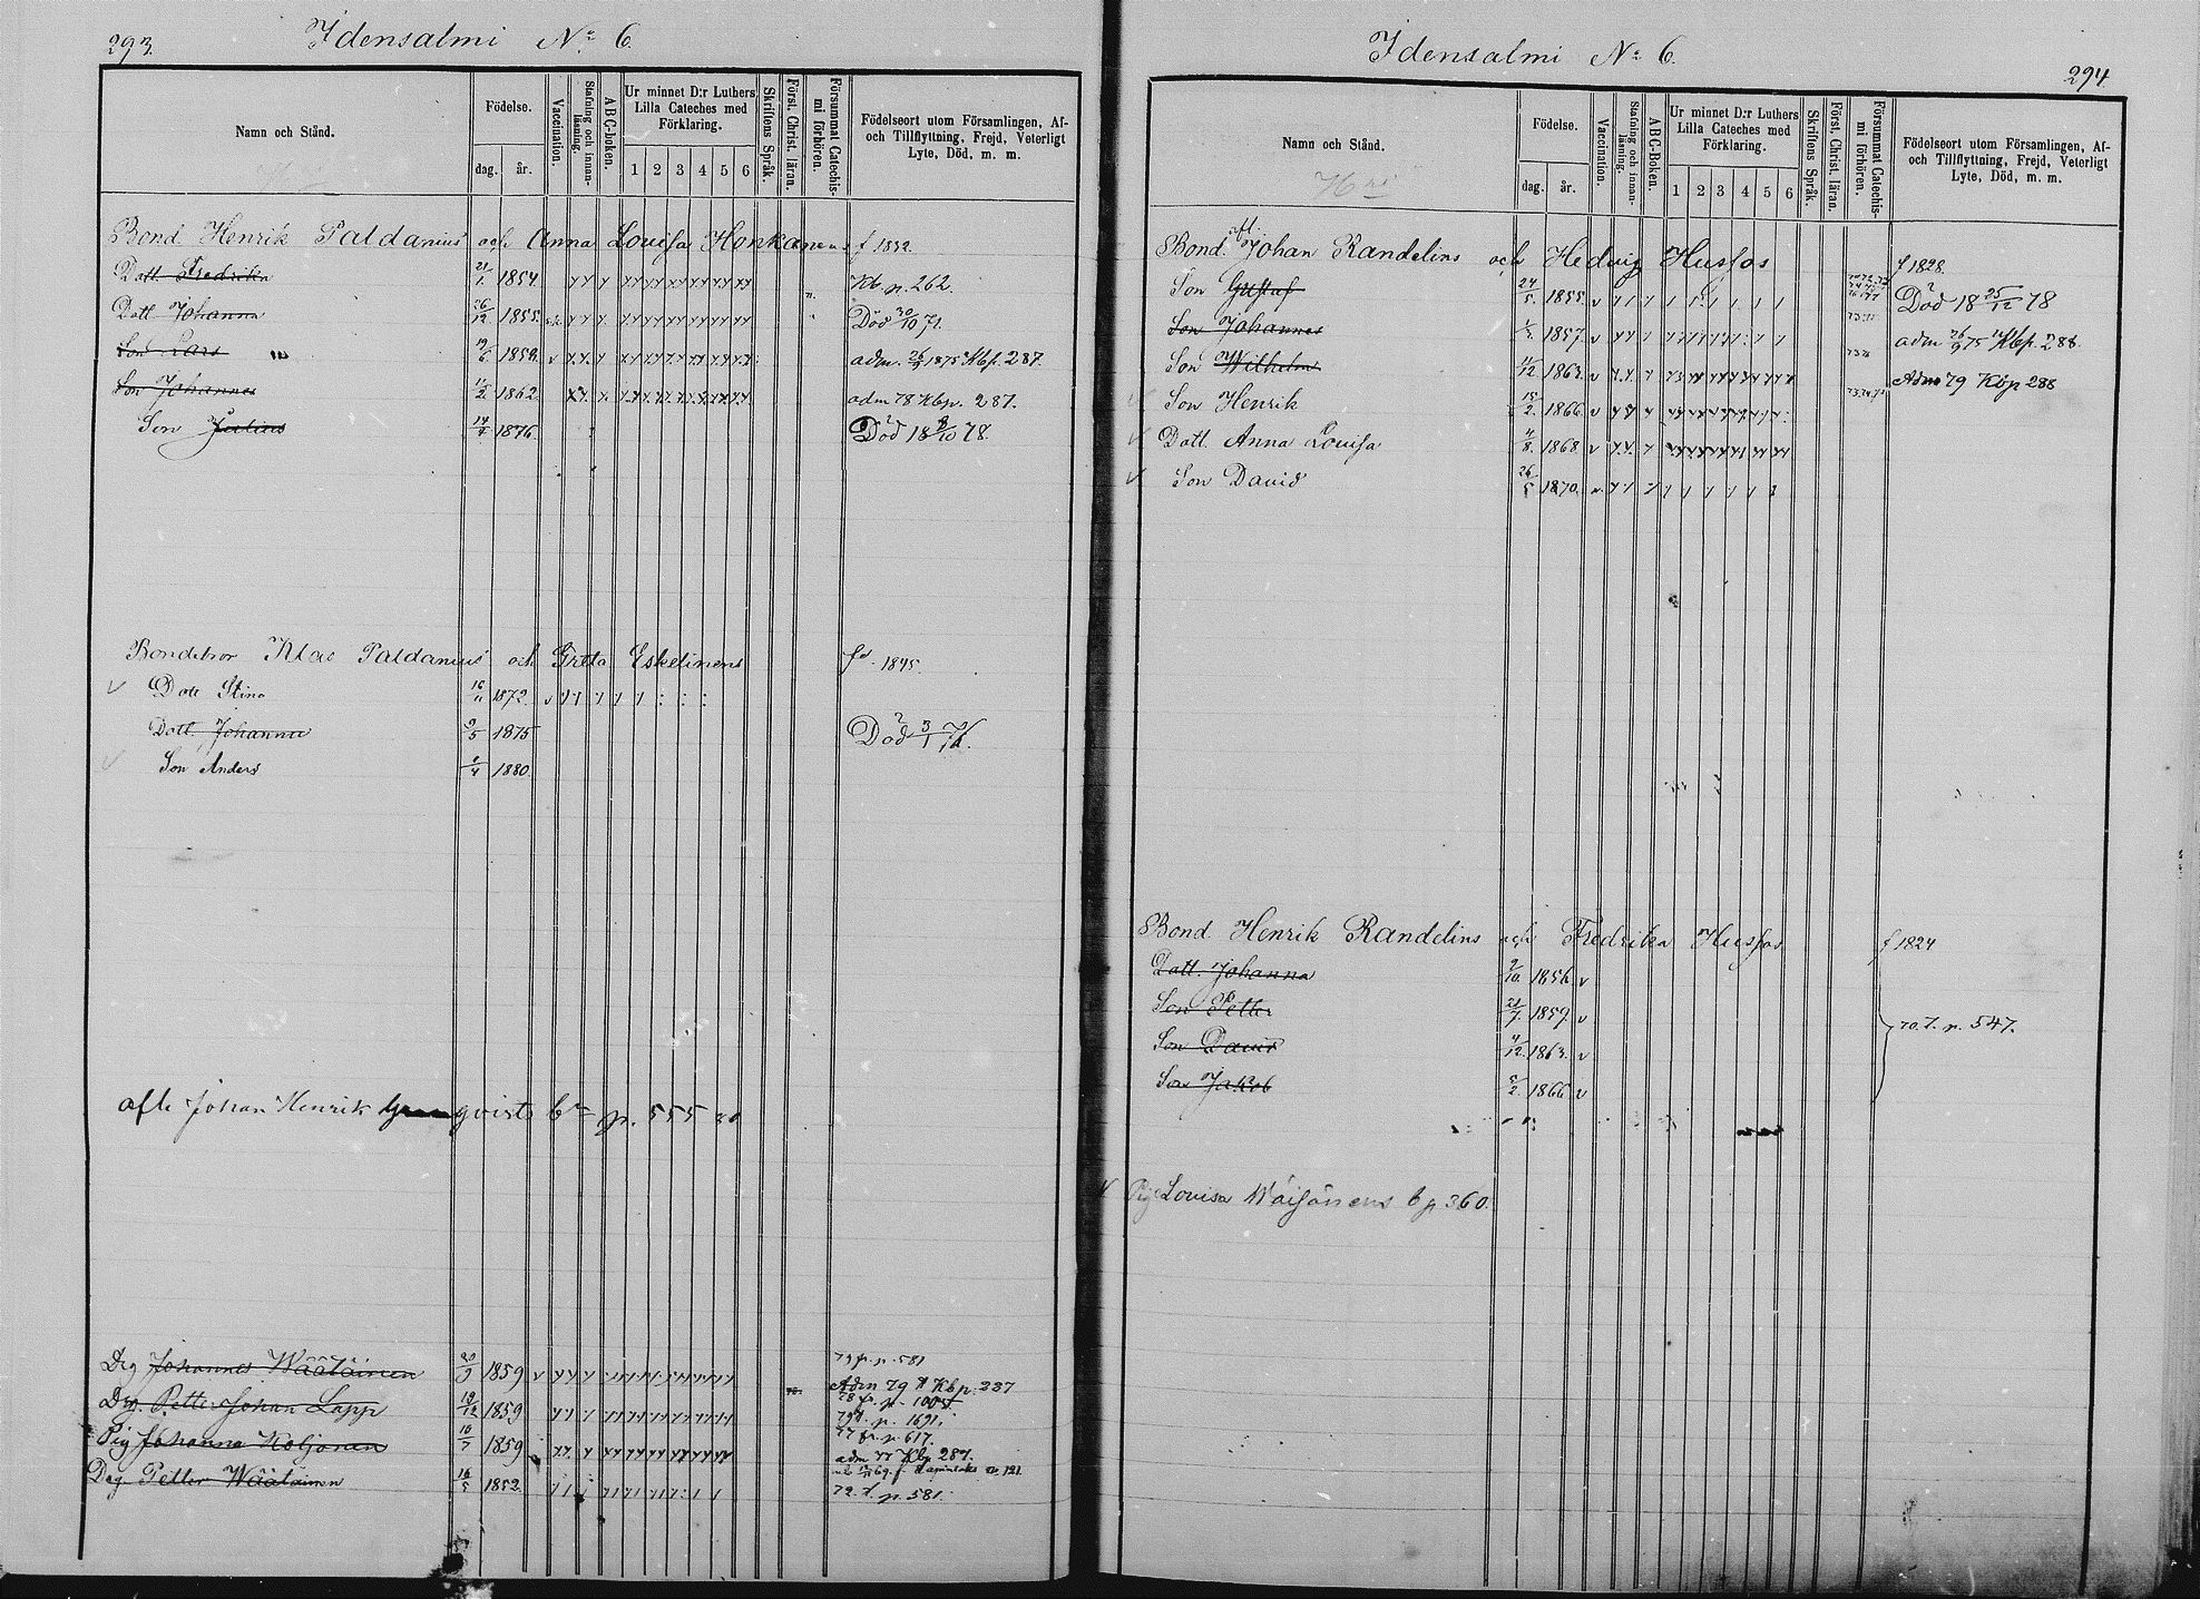 293.
Idensalmi No 6.
Namn och Stånd.
Födelse.
dag. år.
Vaccination.
Stafning och innan-läsning.
ABC-boken.
Ur minnet D:r Luthers
Lilla Cateches med
Förklaring.
1 2 3 4 5 6
Skriftens Språk.
Först. Christ. läran.
Försummat Catechis-
mi förhören.
Födelseort utom Församlingen, Af-
och Tillflyttning, Frejd, Veterligt
Lyte, Död, m. m.
Bond. Henrik Paldanius och Anna Lovisa Honkanens f 1832.
Dott. Fredrika 21/1. 1854. Kb. p. 262.
Dott. Johanna 26/12 1855. Död 30/10 71.
Son Lars 19/6 1859. adm. 26/9 1875 Kbp. 287.
Son Johannes 1862 adm 78 Kbp. 287.
Son Julius 1876. Död 18 8/10 78.
Bondebror Klas Paldanius och Greta Eskelinens fd. 1845.
Dott Stina 16/11 1872.
Dott. Johanna 9/5 1875 Död 3/1 76.
Son Anders 1880.
afl. Johan Henrik qvists bn p. 555
Drg Johannes Wäätäinen 20/9 1859 79 fr. p. 581
Adm 79 Kbp. 287
Drg. Petter Johan Lapp 1859 78 fr. p.
79 t. p. 1691.
Pig Johanna Koljonen 10/7 1859 77 fr. p. 617.
adm 77 Kbp 287.
Drg Petter Wäätäinen 16/5 1852. 72. t. p. 581.
Idensalmi No 6.
294.
Namn och Stånd.
Födelse.
dag. år.
Vaccination.
Stafning och innan-läsning.
ABC-Boken.
Ur minnet D:r Luthers
Lilla Cateches med
Förklaring.
1 2 3 4 5 6
Skriftens Språk.
Först. Christ. läran.
Försummat Catechis-
mi förhören.
Födelseort utom Församlingen, Af-
och Tillflyttning, Frejd, Veterligt
Lyte, Död, m. m.
Bond. afl. Johan Randelins och Hedvig Hussos f 1828.
Son Gustaf 24/5. 1855. Död 18 25/12 78
Son Johannes 1857. adm 26/9 75 Kbp. 288.
Son Wilhelm 1863. Adm 79 Kbp 288
Son Henrik 15/2. 1866
Dott. Anna Lovisa 4/8. 1868
Son David 26/5 1870.
Bond. Henrik Randelins och Fredrika Hussos f 1824
Dott. Johanna 9/10. 1856.
Son Petter 21/7. 1859.
Son David 4/12. 1863. 70. t. p. 547.
Son Jakob 5/2. 1866
Pig Lovisa Wäisänens b p 360.